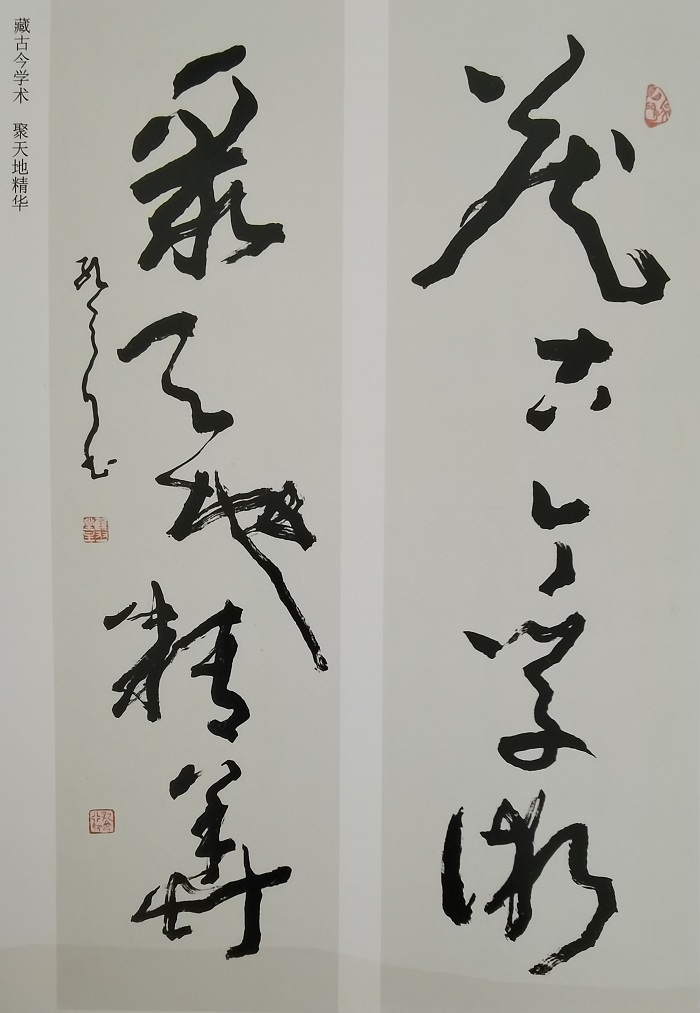 藏古今学术 聚天地精华
藏古今學術
聚天地精華